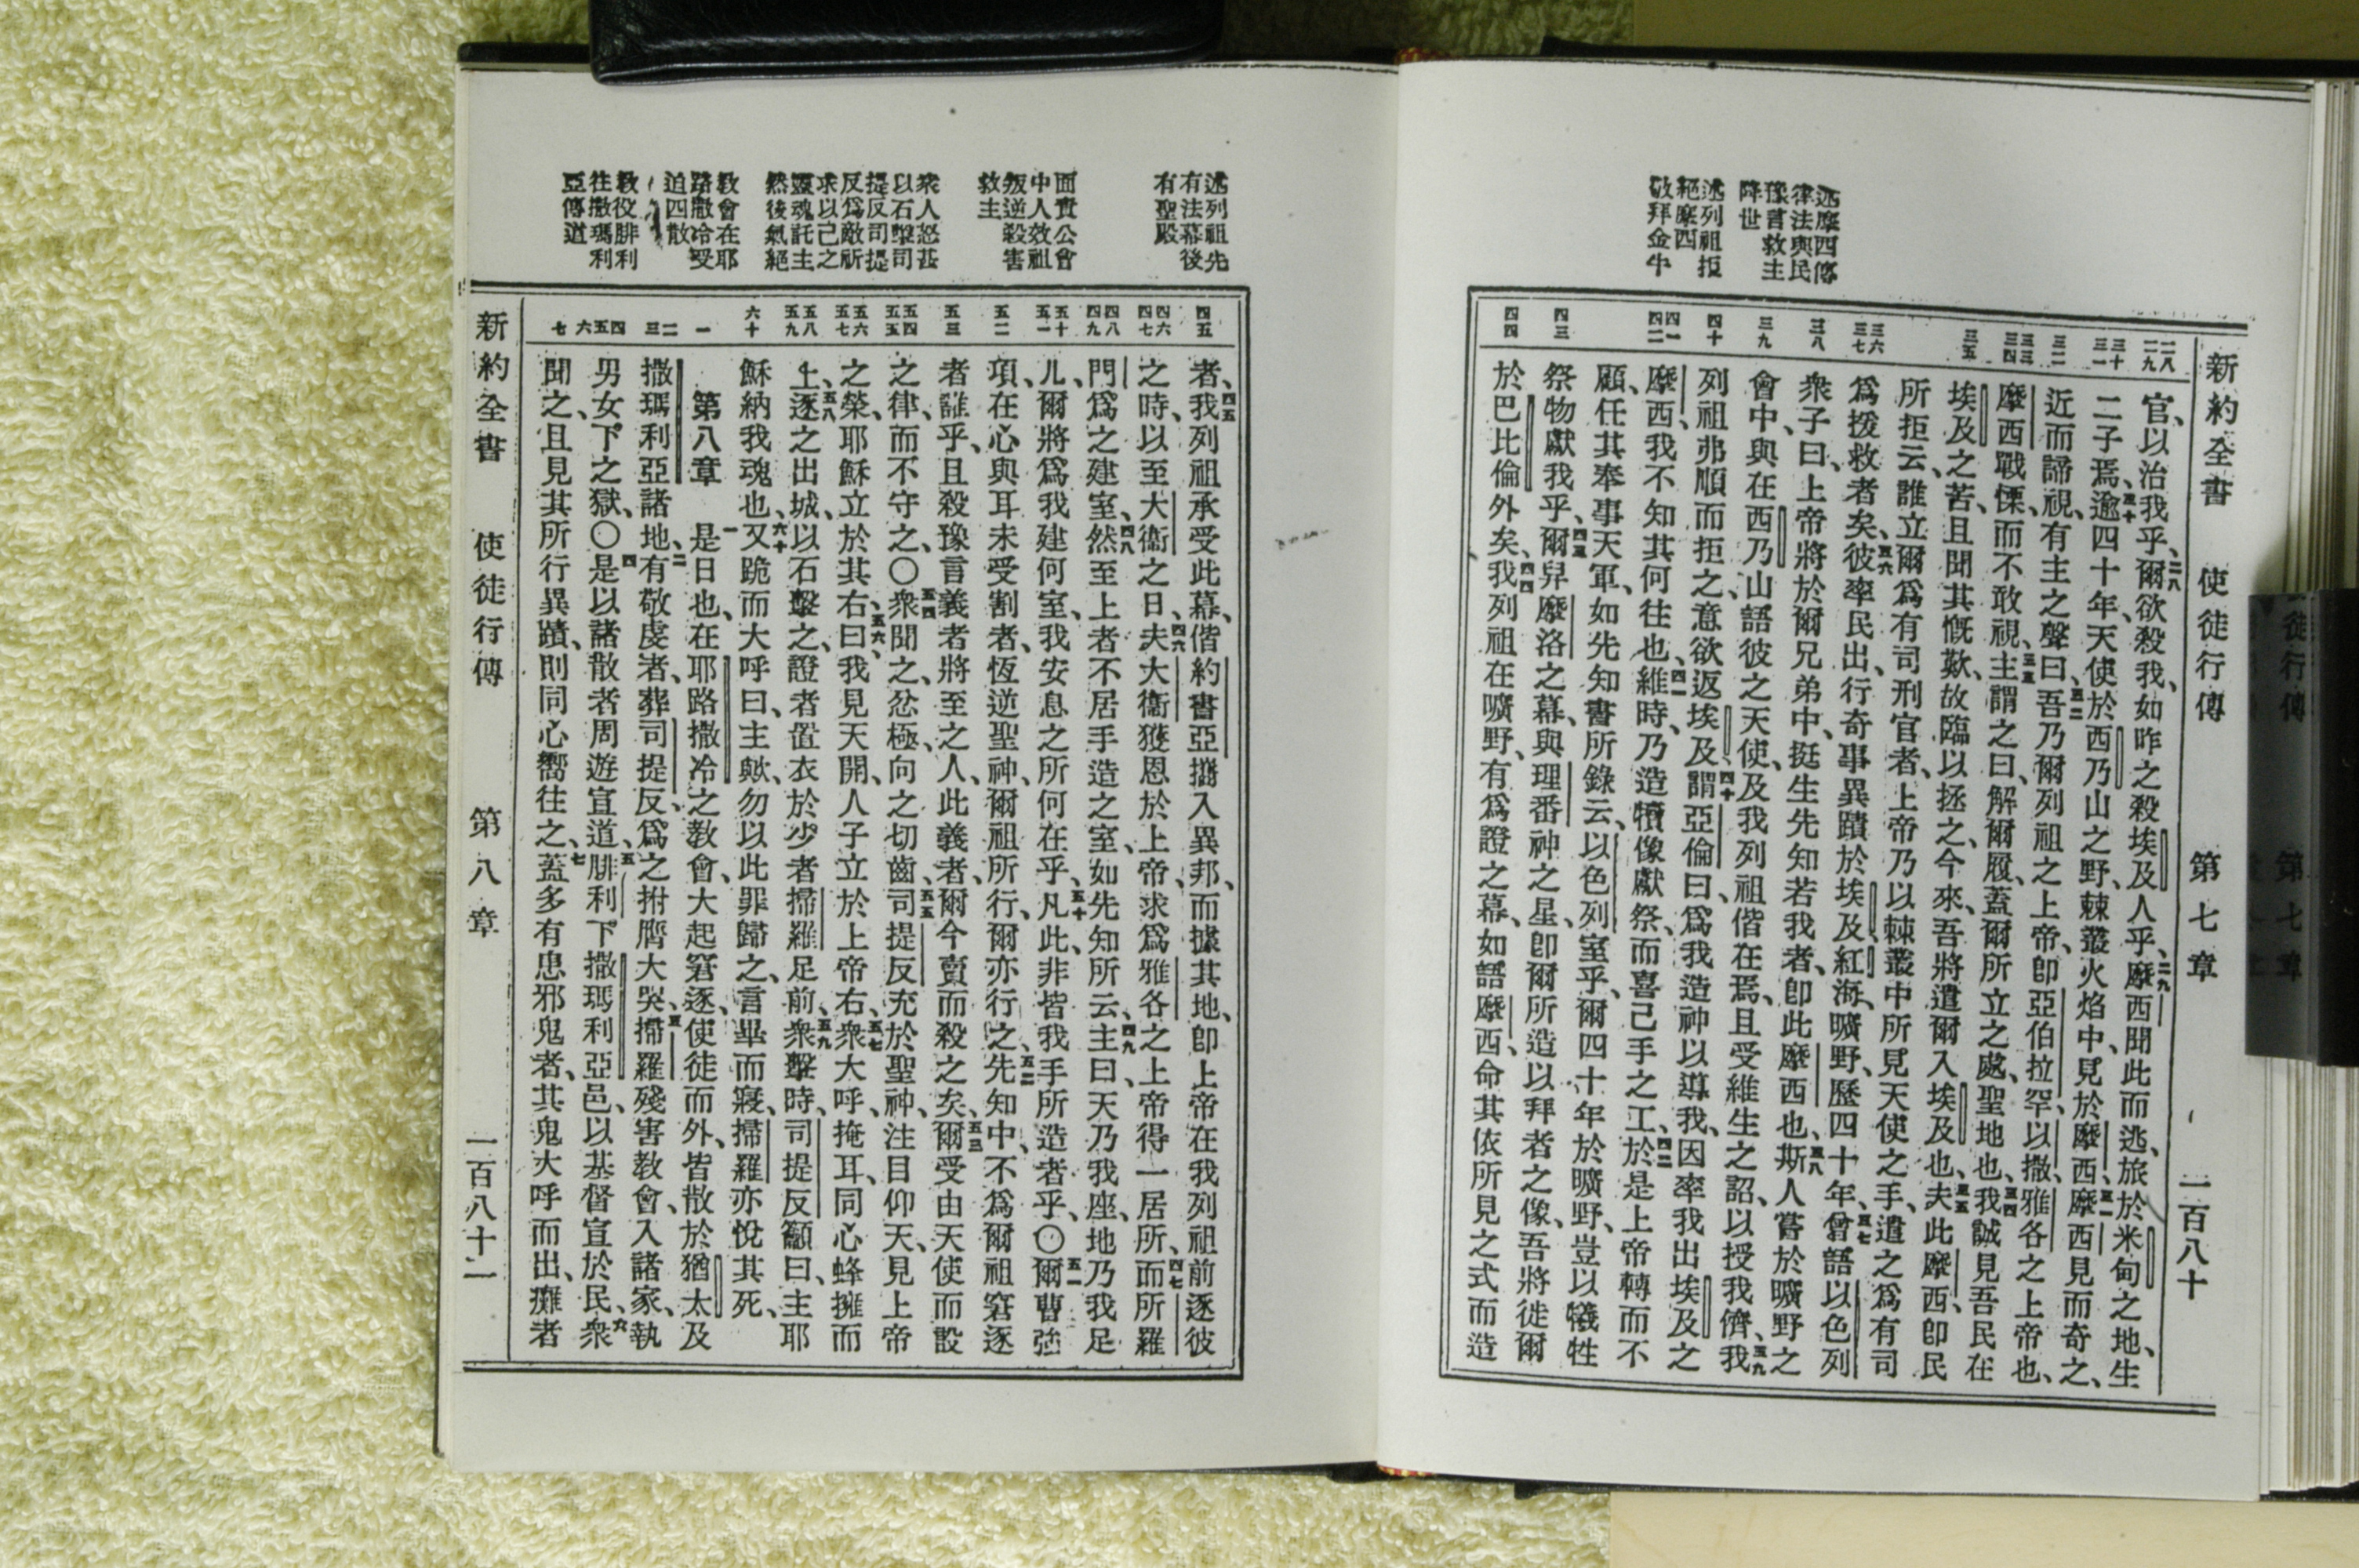 新約全書 使徒行傳 第七章 一百八十
述摩西傳
律法與民
豫言救主
降世
述列祖拒
絕摩西
敬拜金牛
二八
二九
三十
三一
三二
三三
三四
三五
三六
三七
三八
三九
四十
四一
四二
四三
四四
官、以治我乎、二八爾欲殺我、如昨之殺埃及人乎、二九摩西聞此而逃、旅於米甸之地、生
二子焉、三十逾四十年、天使於西乃山之野、棘叢火焰中、見於摩西、三一摩西見而奇之、
近而諦視、有主之聲曰、三二吾乃爾列祖之上帝、卽亞伯拉罕、以撒、雅各之上帝也、
摩西戰慄而不敢視、三三主謂之曰、解爾履、蓋爾所立之處、聖地也、三四我誠見吾民在
埃及之苦、且聞其慨歎、故臨以拯之、今來、吾將遣爾入埃及也、三五夫此摩西、卽民
所拒云、誰立爾爲有司刑官者、上帝乃以棘叢中所見天使之手、遣之爲有司
爲援救者矣、三六彼率民出、行奇事異蹟於埃及、紅海、曠野、歷四十年、三七曾語以色列
衆子曰、上帝將於爾兄弟中、挺生先知若我者、卽此摩西也、三八斯人嘗於曠野之
會中、與在西乃山語彼之天使、及我列祖偕在焉、且受維生之詔、以授我儕、三九我
列祖弗順而拒之、意欲返埃及、四十謂亞倫曰、爲我造神以導我、因率我出埃及之
摩西、我不知其何往也、四一維時、乃造犢像獻祭、而喜己手之工、四二於是上帝轉而不
顧、任其奉事天軍、如先知書所錄云、以色列室乎、爾四十年於曠野、豈以犧牲
祭物獻我乎、四三爾舁摩洛之幕、與理番神之星、卽爾所造以拜者之像、吾將徙爾
於巴比倫外矣、四四我列祖在曠野、有爲證之幕、如語摩西、命其依所見之式而造
述列祖先
有法幕後
有聖殿
面責公會
中人效祖
叛逆殺害
救主
衆人怒甚
以石擊司
提反司提
反爲敵祈
求以己之
靈魂託主
然後氣絕
敎會在耶
路撒冷受
迫四散
敎役腓利
往撒瑪利
亞傳道
四五
四六
四七
四八
四九
五十
五一
五二
五三
五四
五五
五六
五七
五八
五九
六十
一
二
三
四
五
六
七
者、四五我列祖承受此幕、偕約書亞攜入異邦、而據其地、卽上帝在我列祖前逐彼
之時、以至大衞之日、四六夫大衞獲恩於上帝、求爲雅各之上帝得一居所、四七而所羅
門爲之建室、四八然至上者不居手造之室、如先知所云、四九主曰、天乃我座、地乃我足
几、爾將爲我建何室、我安息之所何在乎、五十凡此、非皆我手所造者乎、〇五一爾曹強
項、在心與耳未受割者、恆逆聖神、爾祖所行、爾亦行之、五二先知中、不爲爾祖窘逐
者誰乎、且殺豫言義者將至之人、此義者、爾今賣而殺之矣、五三爾受由天使而設
之律、而不守之、〇五四衆聞之、忿極、向之切齒、五五司提反充於聖神、注目仰天、見上帝
之榮、耶穌立於其右、五六曰、我見天開、人子立於上帝右、五七衆大呼、掩耳、同心蜂擁而
上、五八逐之出城、以石擊之、證者置衣於少者掃羅足前、五九衆擊時、司提反籲曰、主耶
穌納我魂也、六十又跪而大呼曰、主歟、勿以此罪歸之、言畢而寢、掃羅亦悅其死、
第八章 一是日也、在耶路撒冷之敎會、大起窘逐、使徒而外、皆散於猶太及
撒瑪利亞諸地、二有敬虔者、葬司提反、爲之拊膺大哭、三掃羅殘害敎會、入諸家、執
男女下之獄、〇四是以諸散者周遊宣道、五腓利下撒瑪利亞邑、以基督宣於民、六衆
聞之、且見其所行異蹟、則同心嚮往之、七蓋多有患邪鬼者、其鬼大呼而出、癱者
新約全書 使徒行傳 第八章 一百八十二